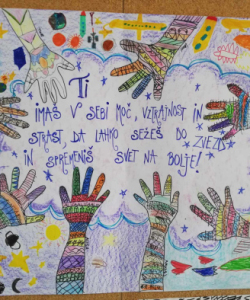 Ti
IMAŠ V SEBI MOČ, VZTRAJNOST IN
STRAST, DA LAHKO SEŽEŠ DO
ZVEZD
IN SPREMENIŠ SVET NA BOLJE!